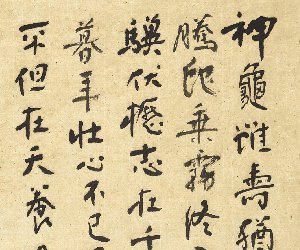 神龜雖壽猶
騰虵乘霧終
驥伏櫪志在千
暮年壯心不已
不但在天養